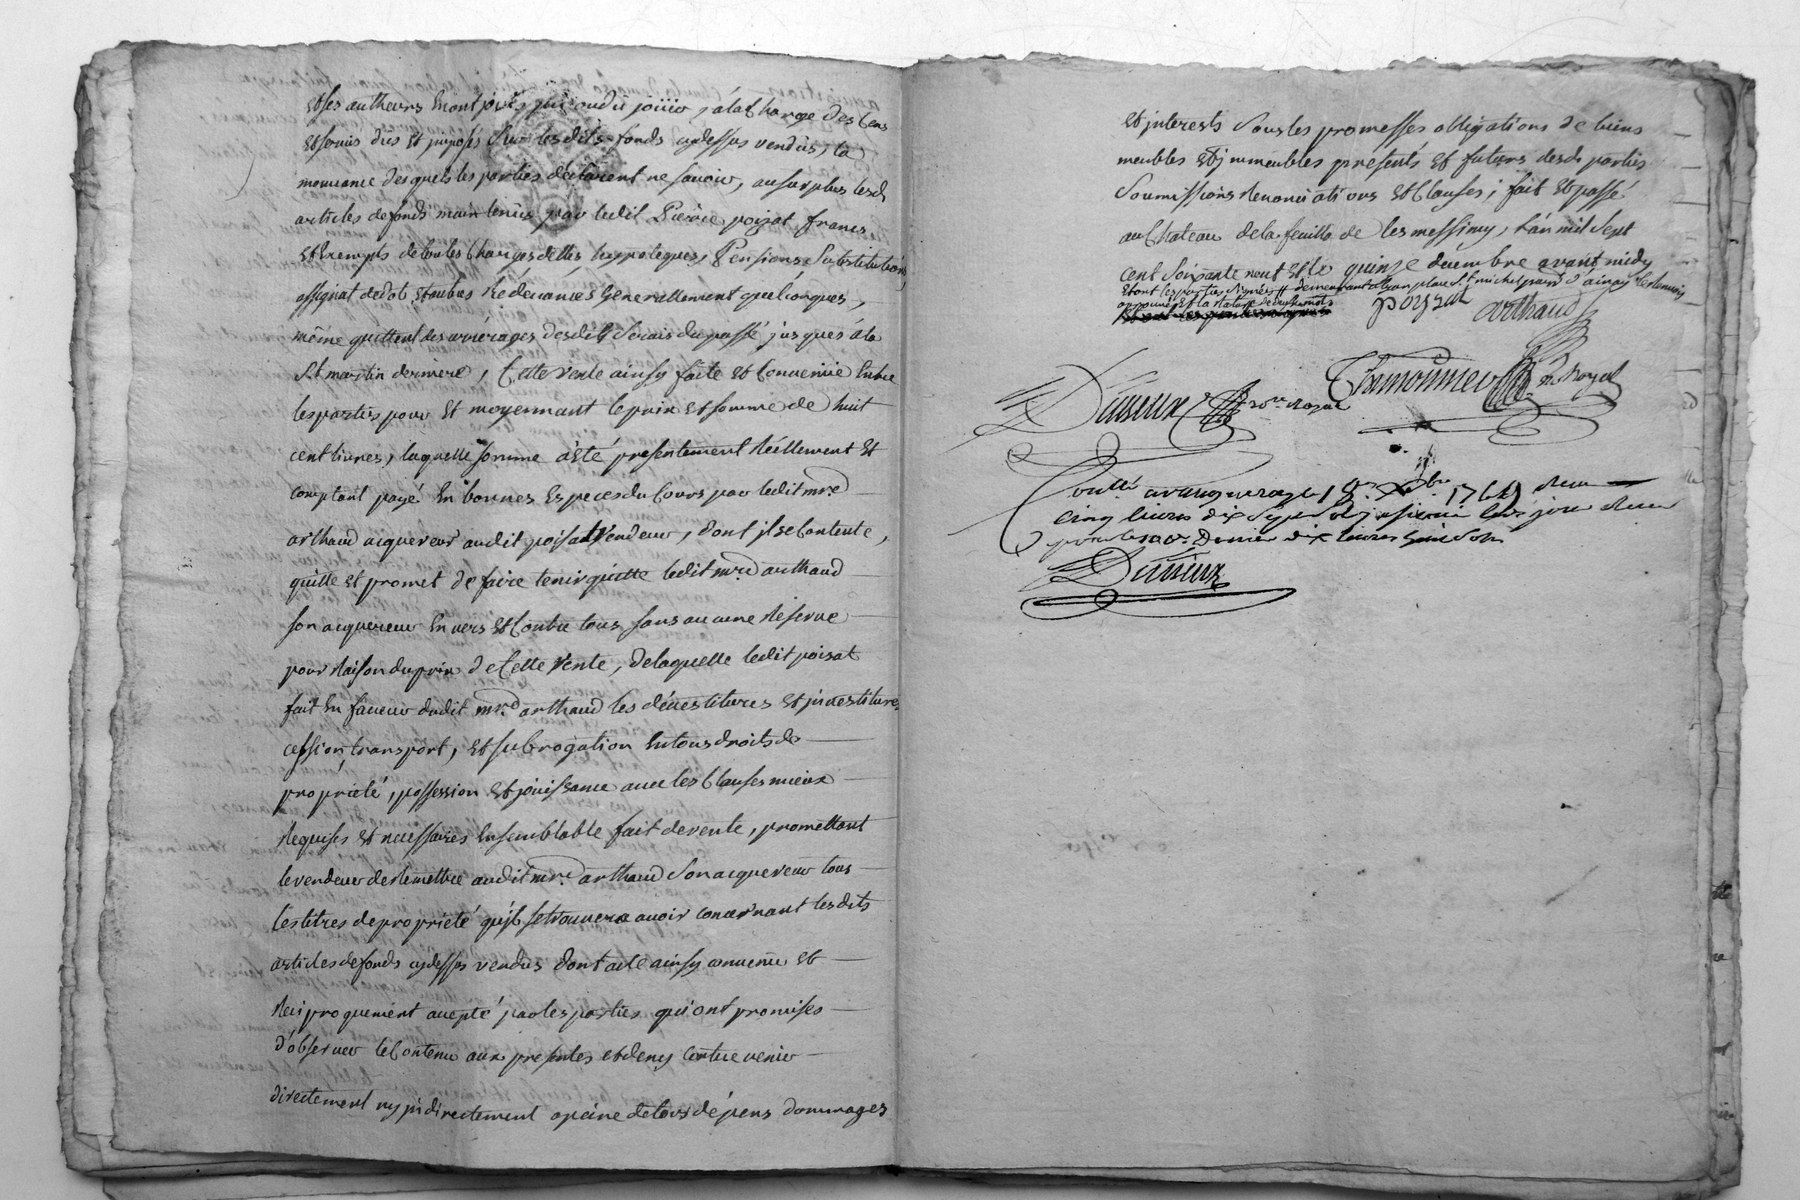 Et ses autheurs En ont joüis pû ou dû joüir, a la Charge des Cens
Et servis dûs Et jmposés Sur lesdits fonds cydessus vendûs, la
mouvance desquels les parties declarent ne savoir, au surplus lesd.
articles de fonds maintenûs par ledit Pierre poizat francs
Et Exempts de toutes Charges dettes, hypoteques, Pensions, Substitutions
assignat de dot, Et autres Redevances Generallement quelconques,
même quittent des arrérages desdits Servis du passé jusques a la
St. martin derniere, Cette vente ainsy faite Et Convenüe Entre
les parties pour Et moyennant le prix Et somme de huit
cent livres, laquelle somme a Eté presentement Réellement Et
comptant payé En bonnes Especes du Cours par ledit mre.
arthaud acquereur audit poisat Vendeur, dont jl se Contente,
quitte Et promet de faire tenir quitte ledit mre. arthaud
son acquereur Envers Et Contre tous sans aucune Réserve
pour Raison du prix de Cette Vente, de laquelle ledit poizat
fait En faveur dudit mre. arthaud les dévestitures Et jnvestitures
cession transport, Et subrogation En tous droits de
propriété, possession Et joüissance avec les Clauses mieux
Requises Et necessaires En semblable fait de vente, promettant
le vendeur de Remettre audit mre. arthaud Son acquereur tous
les titres de propriété qu'jl se trouvera avoir concernant lesdits
articles de fonds cydessus vendus dont acte ainsy convenu Et
Reciproquement accepté par les parties qui ont promises
d'observer le Contenu aux presentes et de ny contrevenir
directement ny jndirectement a peine de tous dépens dommages
Et jnterests Sous les promesses obligations de biens
meubles Et jmmeubles presents Et futurs desd. parties
Soumissions Renonciations Et Clauses; fait Et passé
au Chateau de la feuillade les messimy, L'an mil Sept
cent Soixante neuf Et le quinze decembre avant midy
Et ont les parties Signés # demeurant a Lyon place St. michel
approuvés Et la Rature de
poizat arthaud
Dusieux nore. Royal n. Royal
Contllé. 1769 Recu
cinq livres dix
dix livres
Dusieux